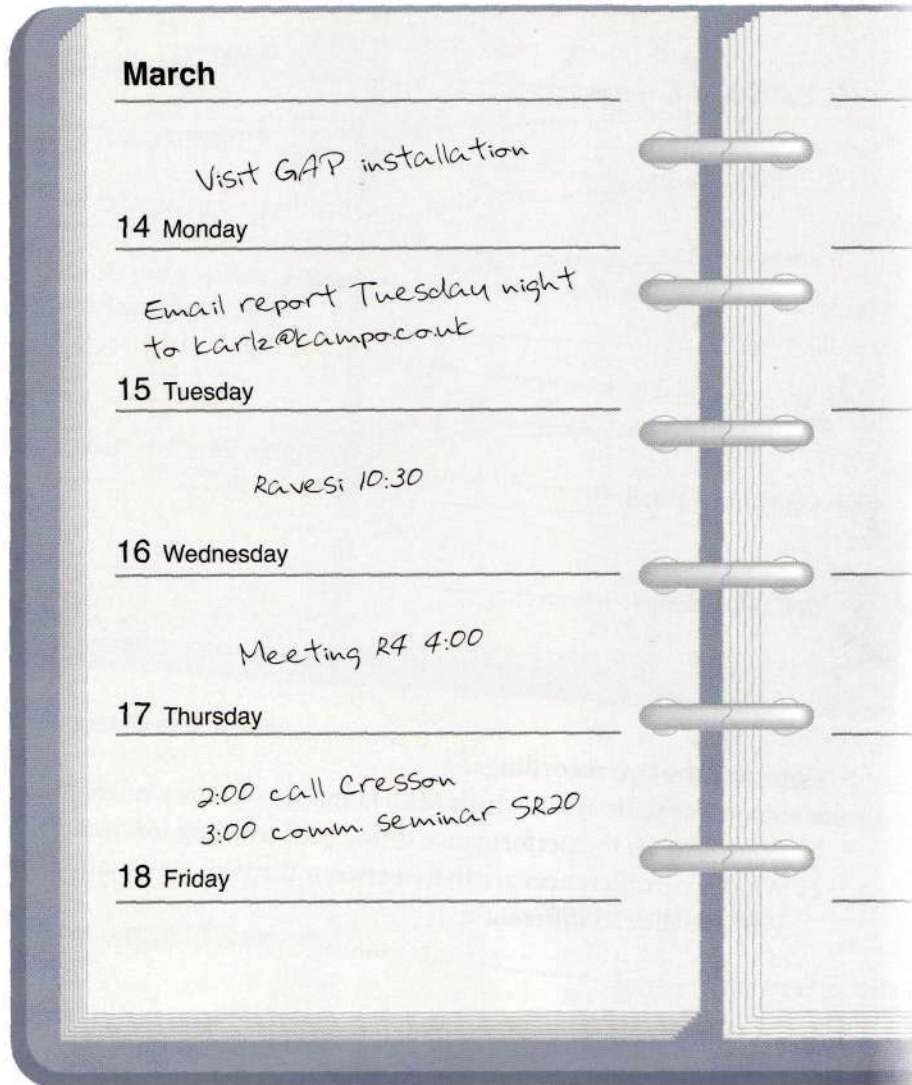 March
Visit GAP installation
14 Monday
Email report Tuesday night
to karlz@kampo.co.uk
15 Tuesday
Ravesi 10:30
16 Wednesday
Meeting R4 4:00
17 Thursday
2:00 call Cresson
3:00 comm. seminar SR20
18 Friday